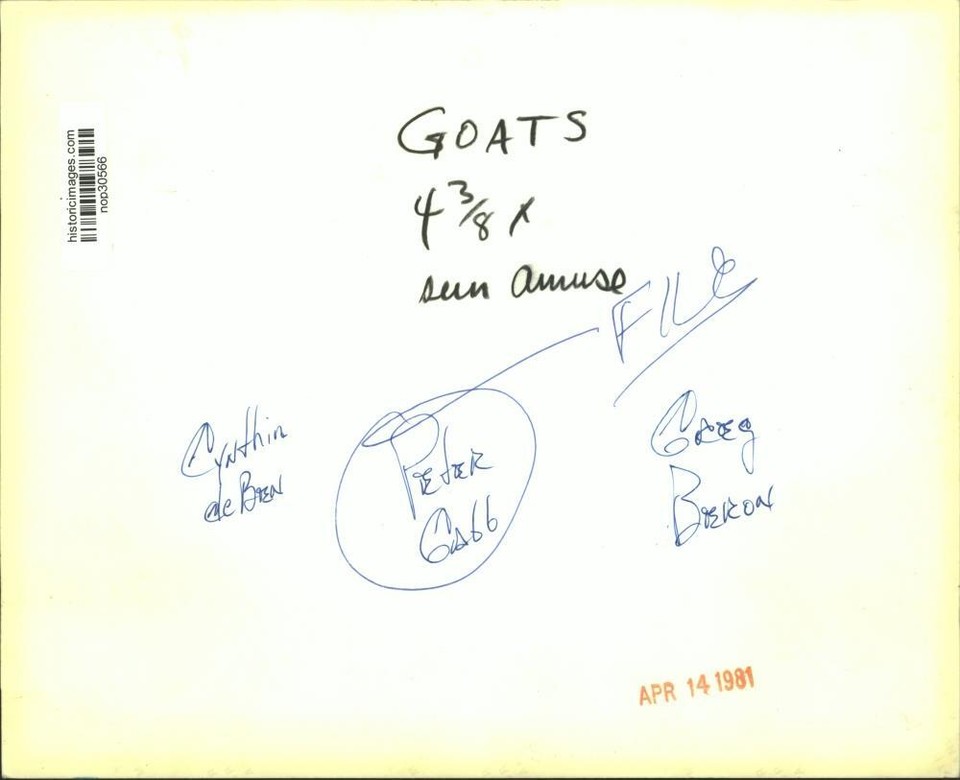 historicimages.com
nop30566
GOATS
4 3/8 x
sun Amuse
FILE
Cynthia
deBien
Pieter
Gabb
Greg
Bieron
APR 14 1981